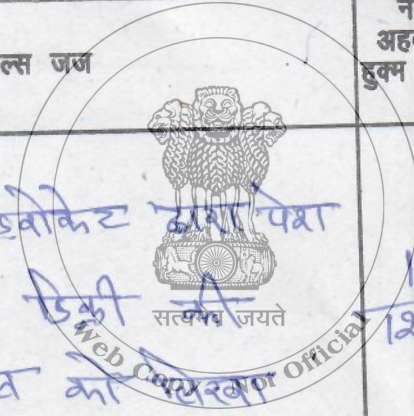 ल्स जज
हुक्म
डवोकेट द्वारा पेश
डिक्री की
सत्यमेव जयते
को लिखा
Web Copy - Not Official